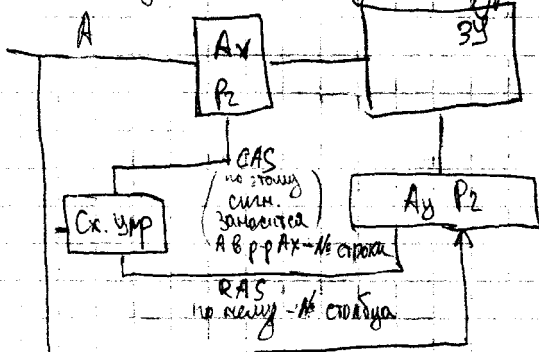 A
Ax
Рг
ЗУ
CAS
(по этому
сигн.
заносится
A в р-р Ax - № строки
Сх. упр
Ay Рг
RAS
по нему - № столбца